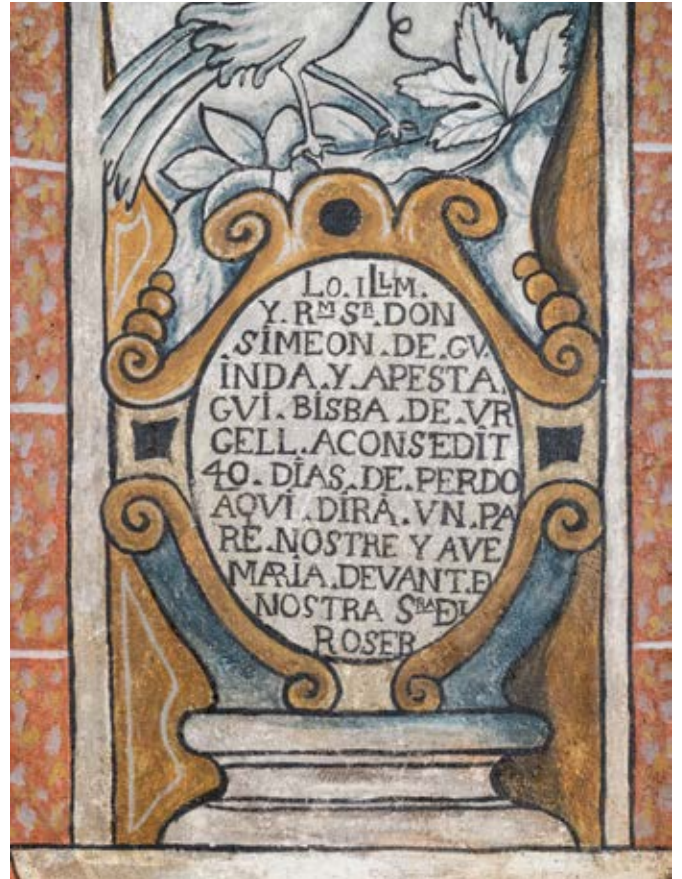 LO. ILLM.
Y. RM SR. DON
.SIMEON.DE.GV.
INDA.Y.APESTA.
GVI.BISBA.DE.VR
GELL.ACONSEDIT
40.DIAS.DE.PERDO
AQVI.DIRÀ.VN.PA
RE.NOSTRE Y AVE
MARIA.DEVANT.EI
NOSTRA SRA DEL
ROSER